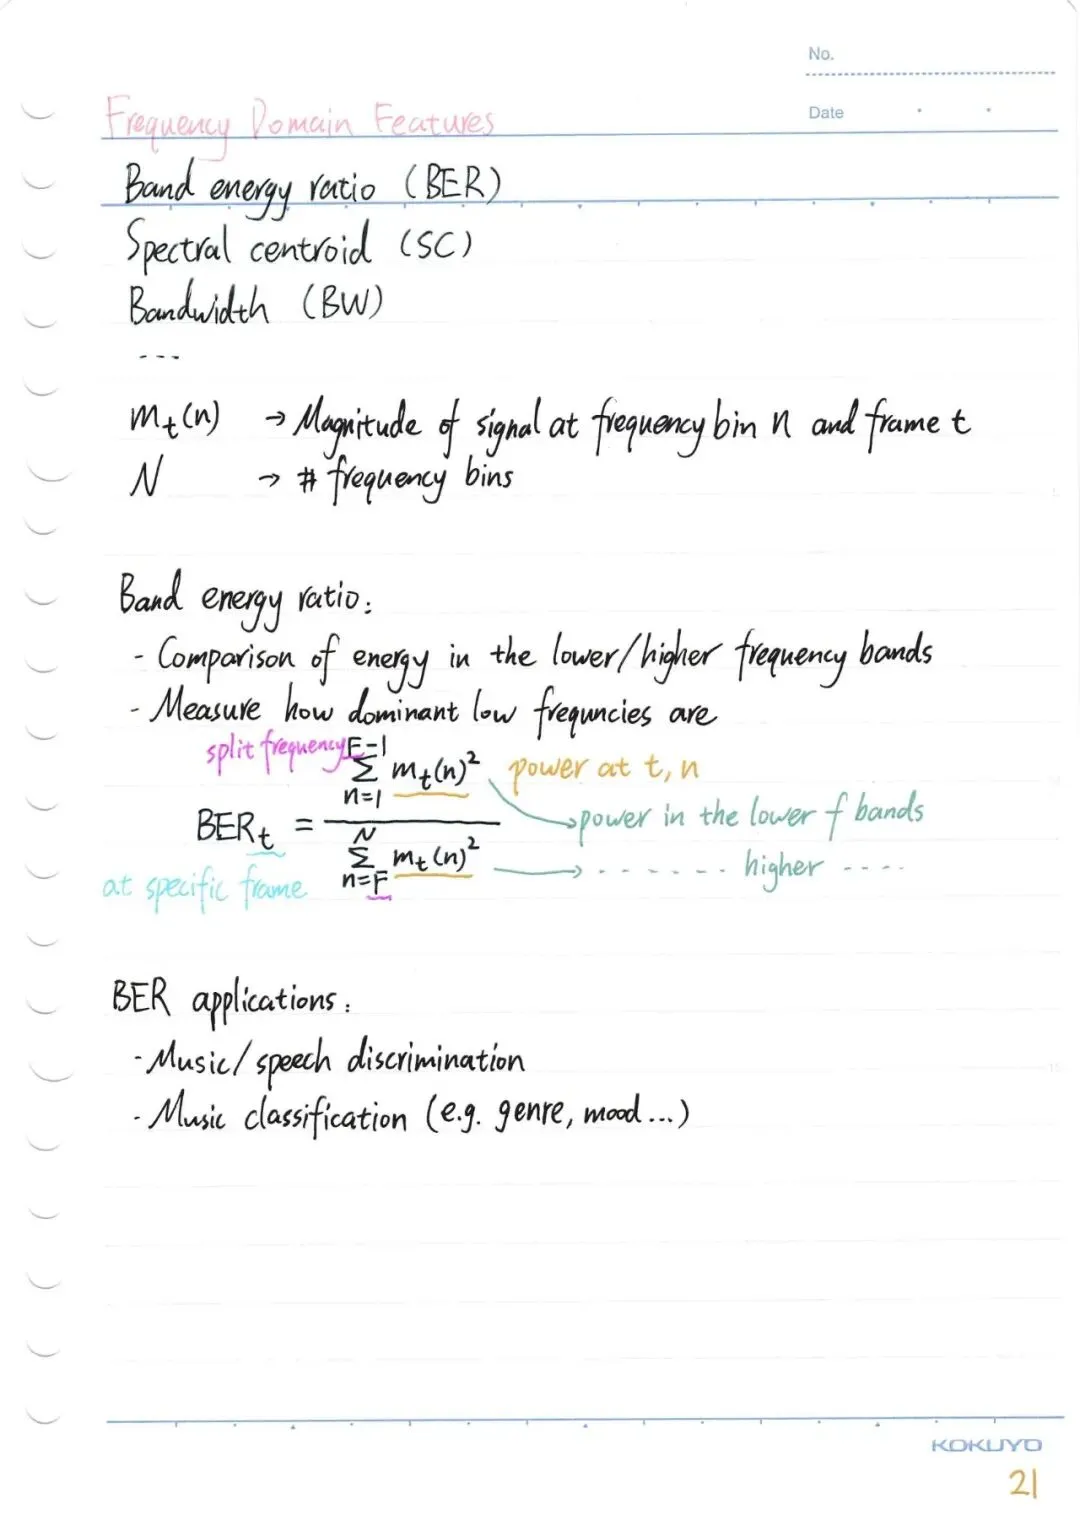 No.
Date
Frequency Domain Features
Band energy ratio (BER)
Spectral centroid (SC)
Bandwidth (BW)
---
m_t(n) → Magnitude of signal at frequency bin n and frame t
N → # frequency bins
Band energy ratio:
- Comparison of energy in the lower/higher frequency bands
- Measure how dominant low frequncies are
split frequency F-1
Σ m_t(n)² power at t, n
n=1
→ power in the lower f bands
BER_t =
N
Σ m_t(n)² → ------ higher ----
n=F
at specific frame
BER applications:
- Music/speech discrimination
- Music classification (e.g. genre, mood...)
KOKUYO
21